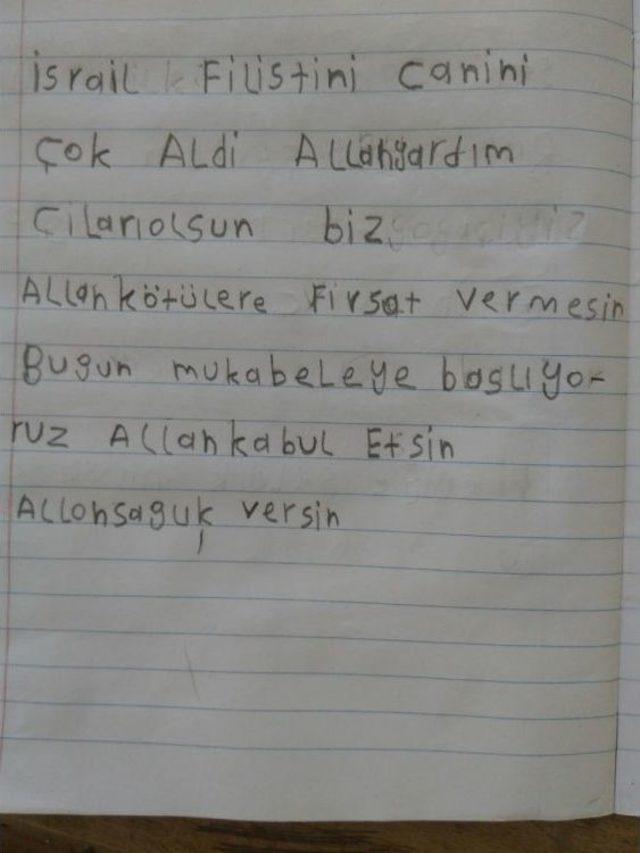 israil Filistini canini
çok ALdi ALLahyardım
CiLarıolsun biz
ALLahkötülere Firsat vermesin
Bugun mukabeleye baslıyo-
ruz ALLahkabul Etsin
ALLahsaguk versin